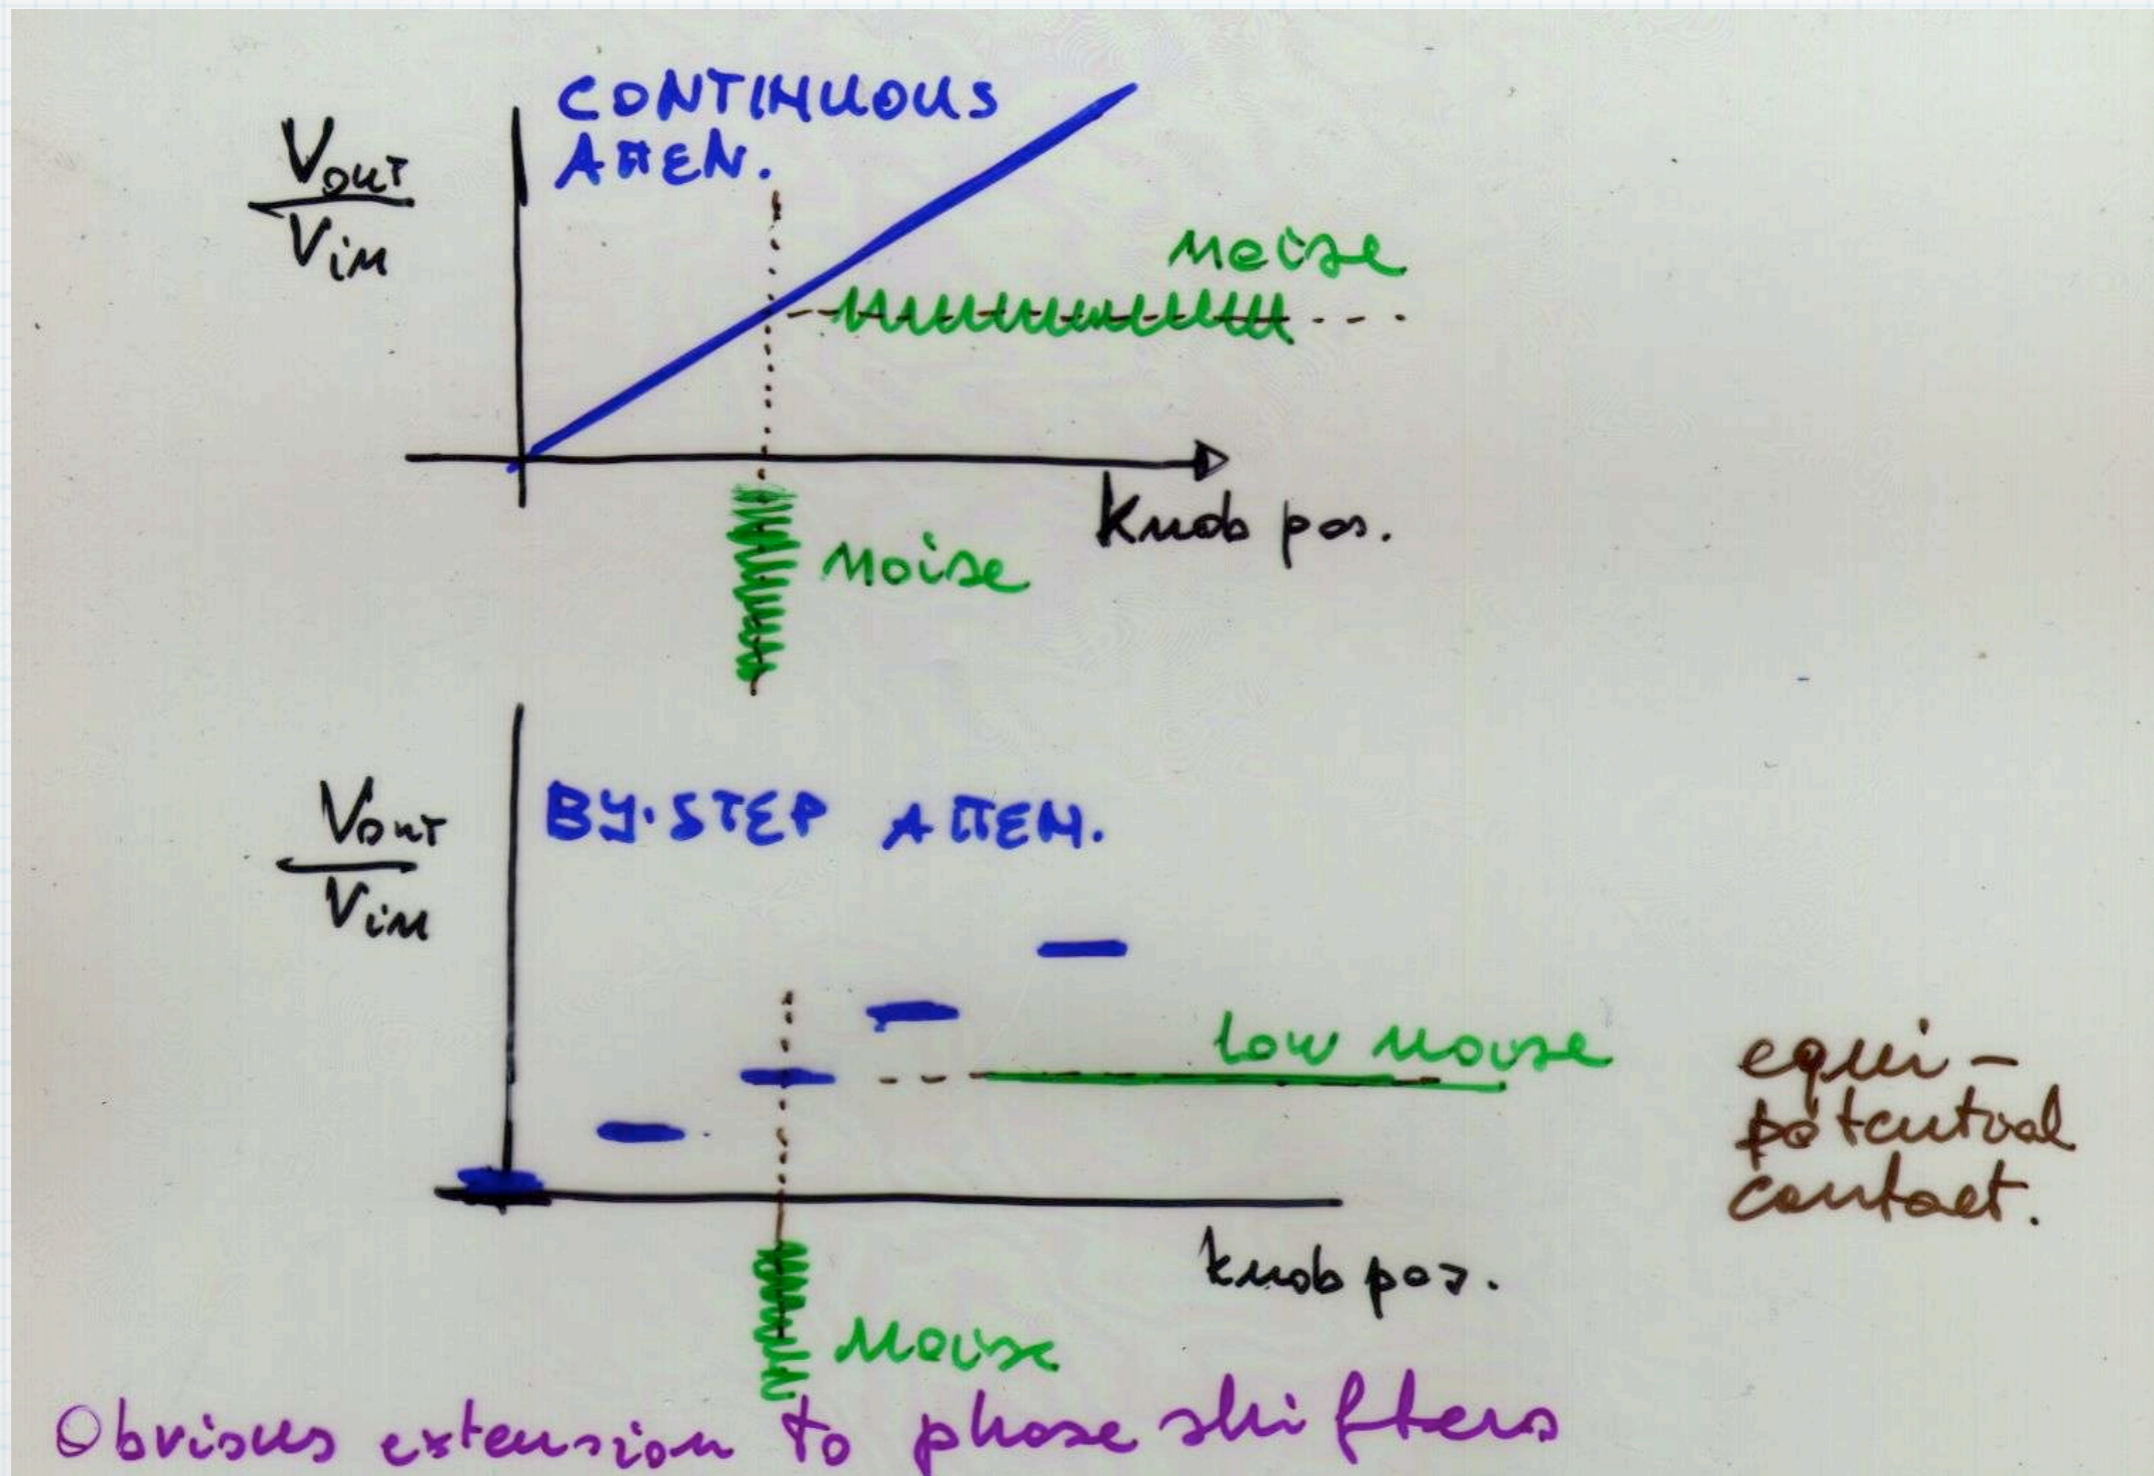 CONTINUOUS
ATTEN.
Vout
Vin
noise
Knob pos.
noise
Vout
Vin
BY-STEP ATTEN.
low noise
equi-
potential
contact.
knob pos.
noise
Obvious extension to phase shifters